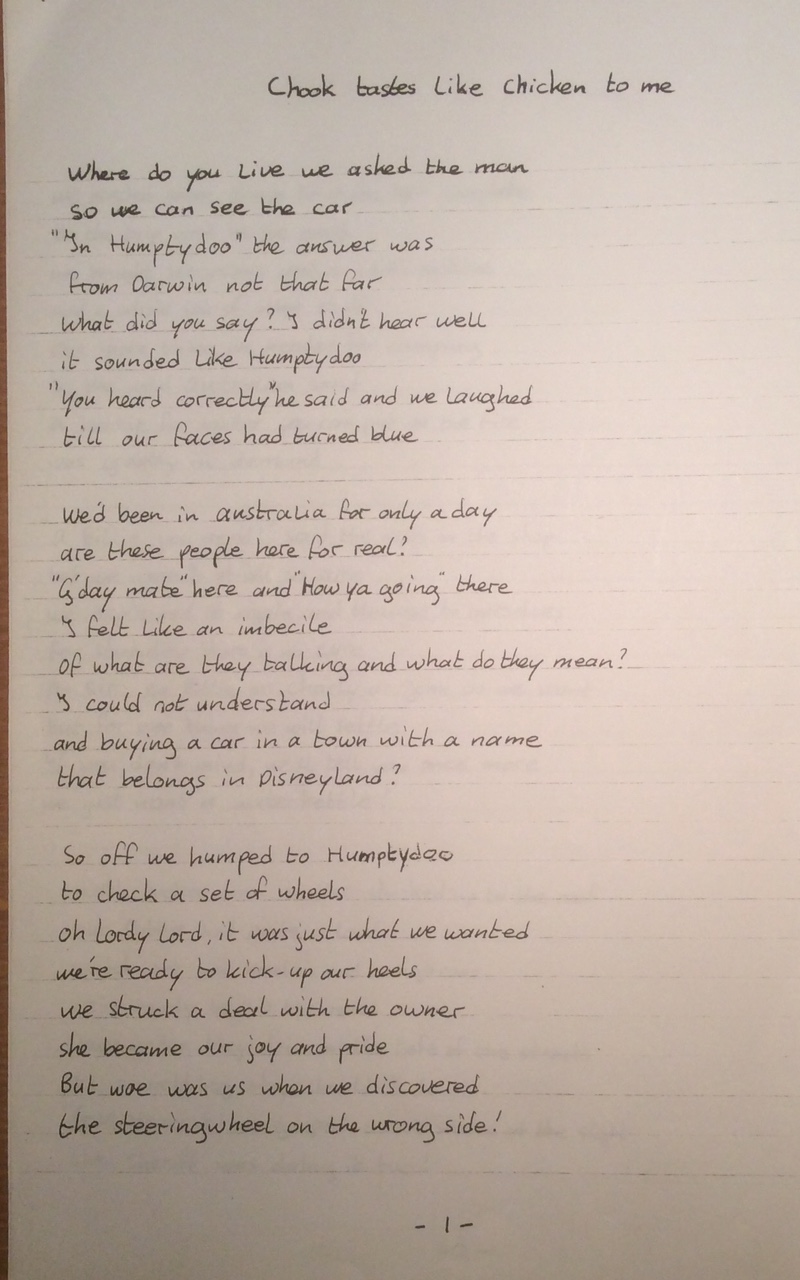 Chook tastes like chicken to me
Where do you live we asked the man
so we can see the car
"In Humptydoo" the answer was
from Darwin not that far
What did you say? I didn't hear well
it sounded like Humptydoo
"You heard correctly" he said and we laughed
till our faces had turned blue
We'd been in australia for only a day
are these people here for real?
"G'day mate" here and "How ya going" there
I felt like an imbecile
Of what are they talking and what do they mean?
I could not understand
and buying a car in a town with a name
that belongs in Disneyland?
So off we humped to Humptydoo
to check a set of wheels
oh lordy lord, it was just what we wanted
we're ready to kick-up our heels
we struck a deal with the owner
she became our joy and pride
But woe was us when we discovered
the steeringwheel on the wrong side!
- 1 -